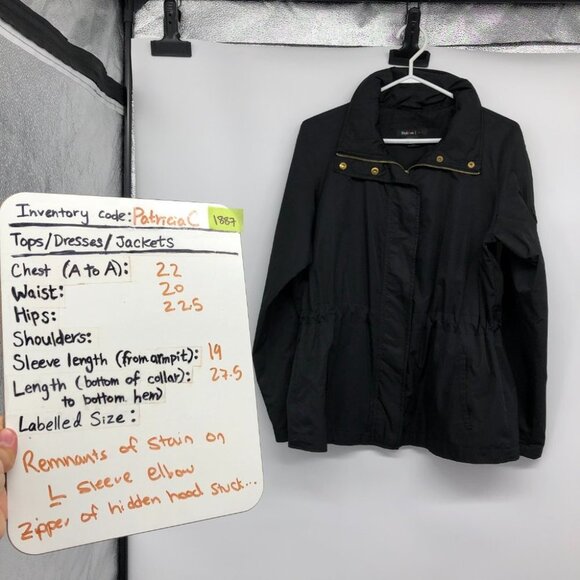 Inventory code: Patricia C 1887
Tops/Dresses/Jackets
Chest (A to A): 22
Waist: 20
Hips: 22.5
Shoulders:
Sleeve length (from armpit): 19
Length (bottom of collar): 27.5
to bottom hem)
Labelled Size:
Remnants of stain on
L sleeve elbow
Zipper of hidden hood stuck...